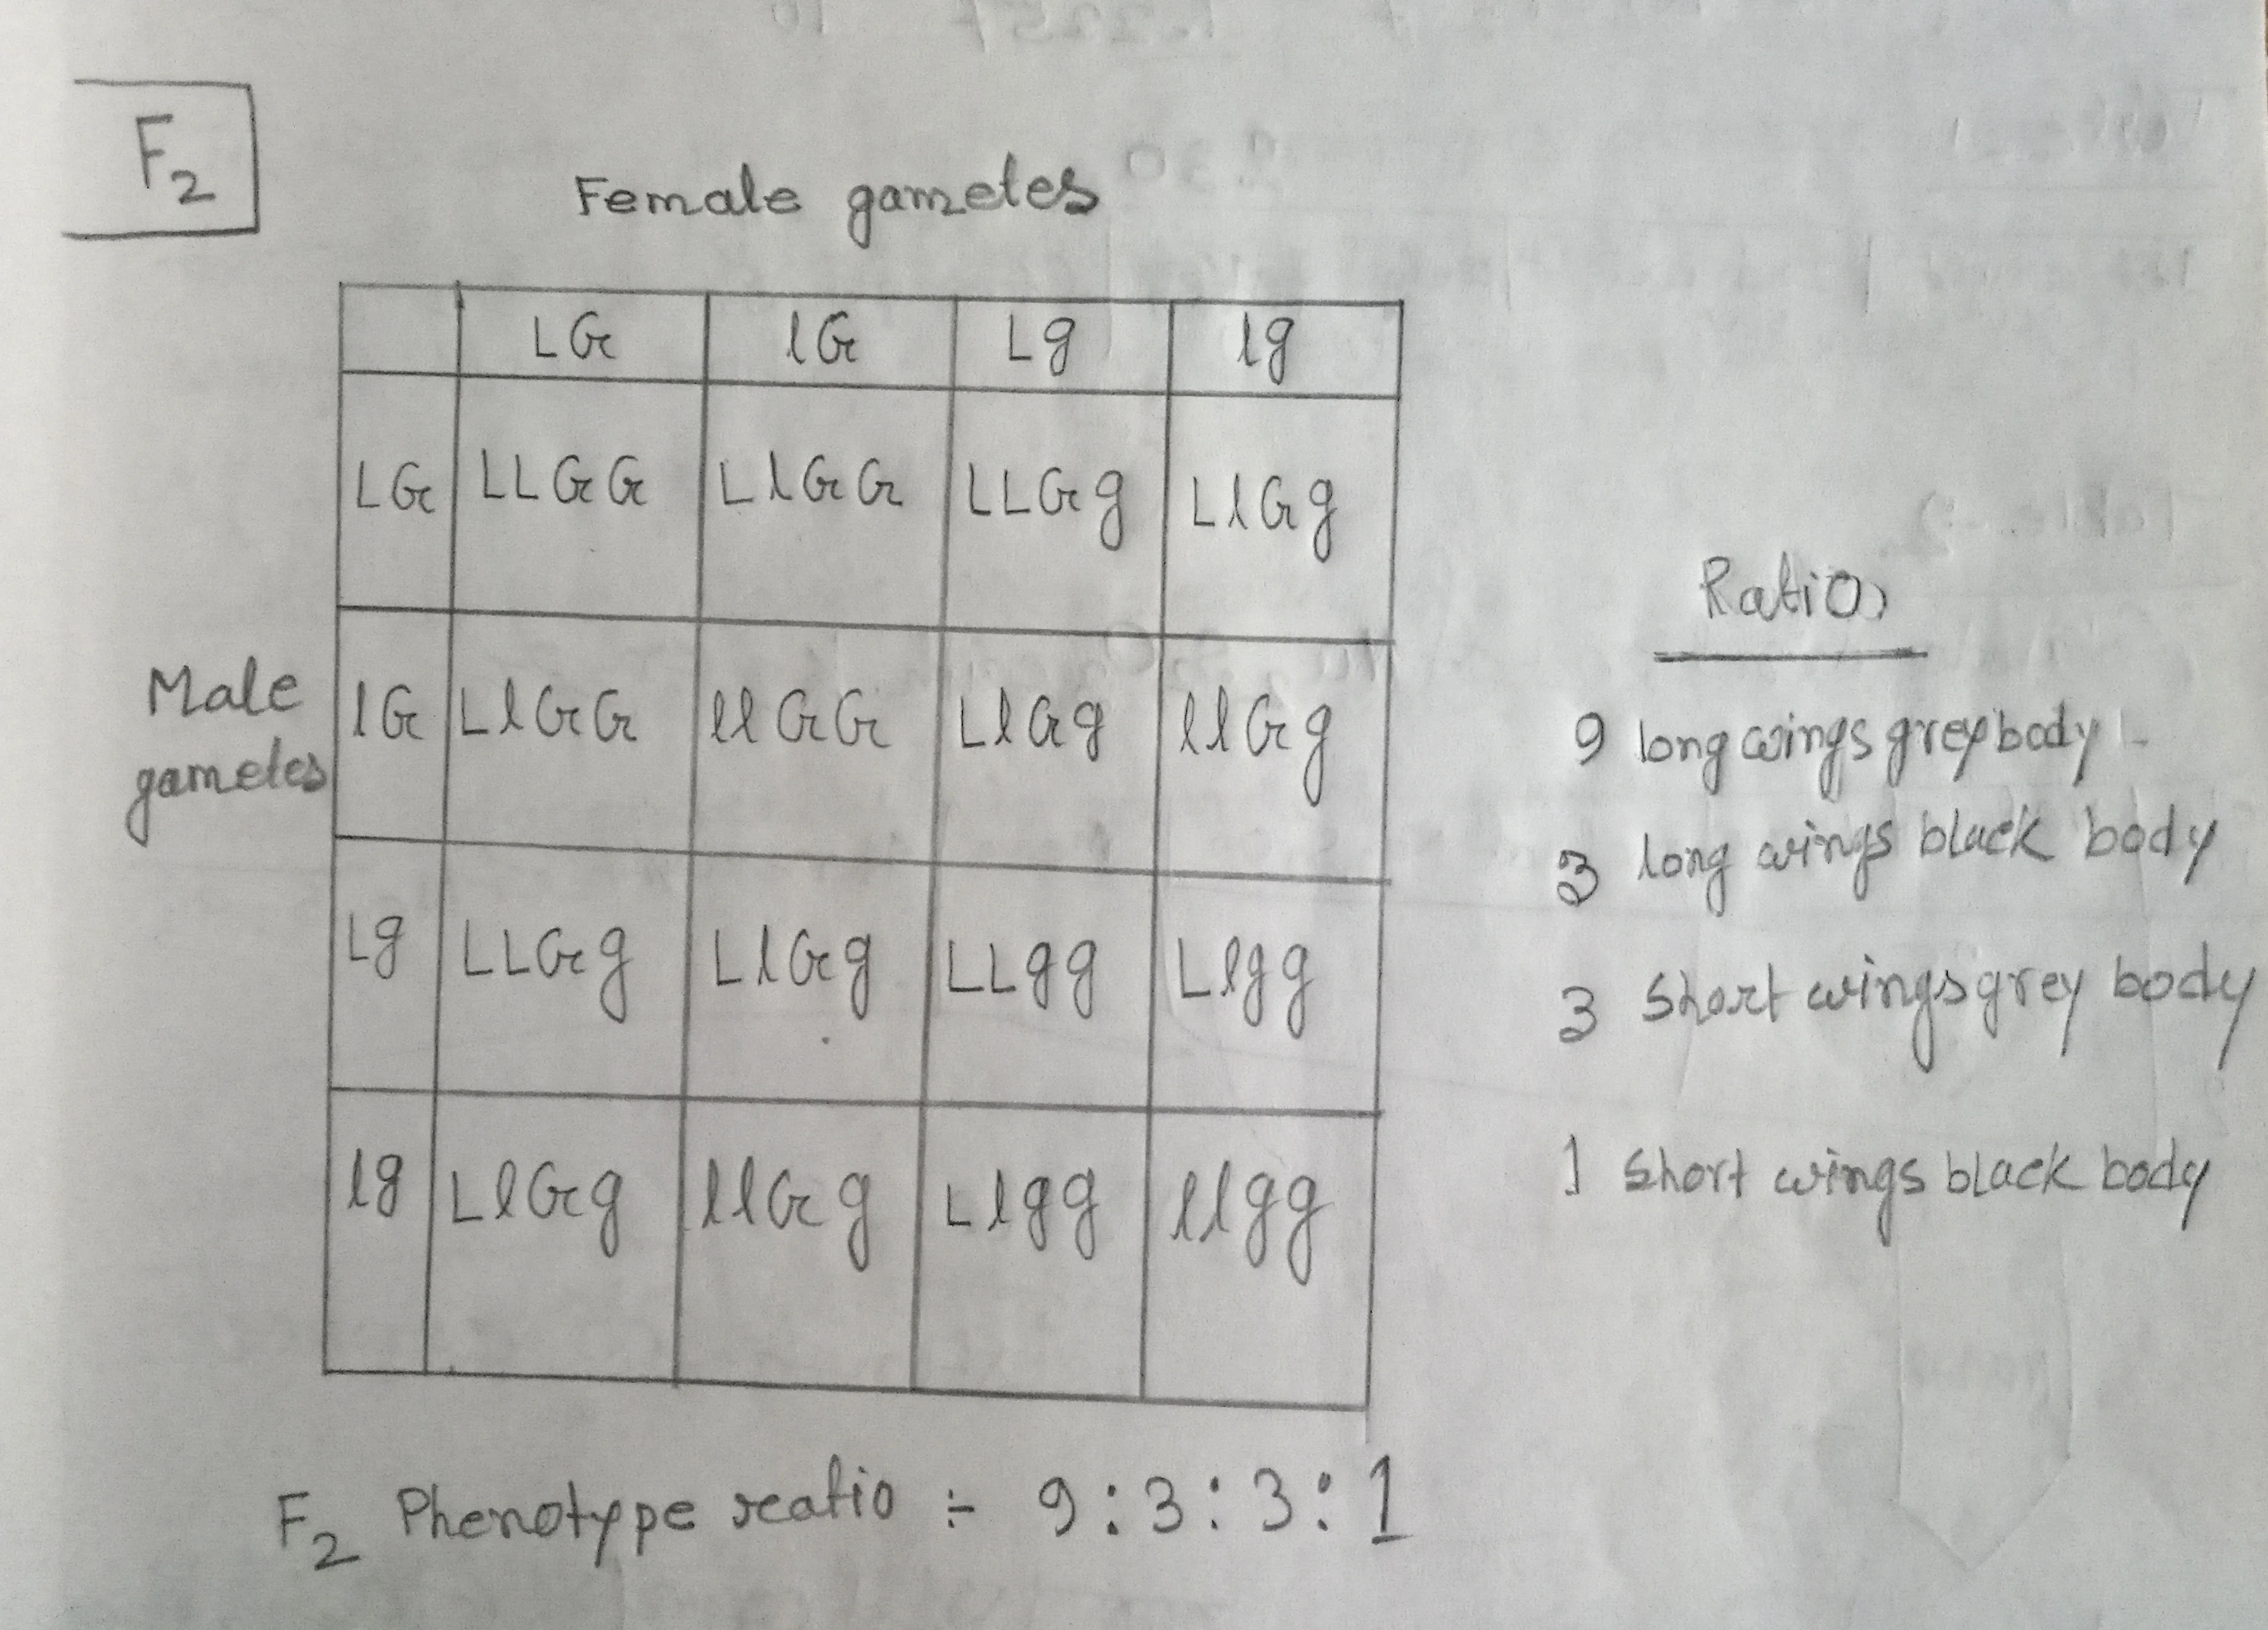 F2
Female gametes
LG lG Lg lg
LG LLGG LlGG LLGg LlGg
Male gametes
lG LlGG llGG LlGg llGg
Lg LLGg LlGg LLgg Llgg
lg LlGg llGg Llgg llgg
F2 Phenotype ratio ÷ 9:3:3:1
Ratio
9 long wings grey body
3 long wings black body
3 Short wings grey body
1 Short wings black body